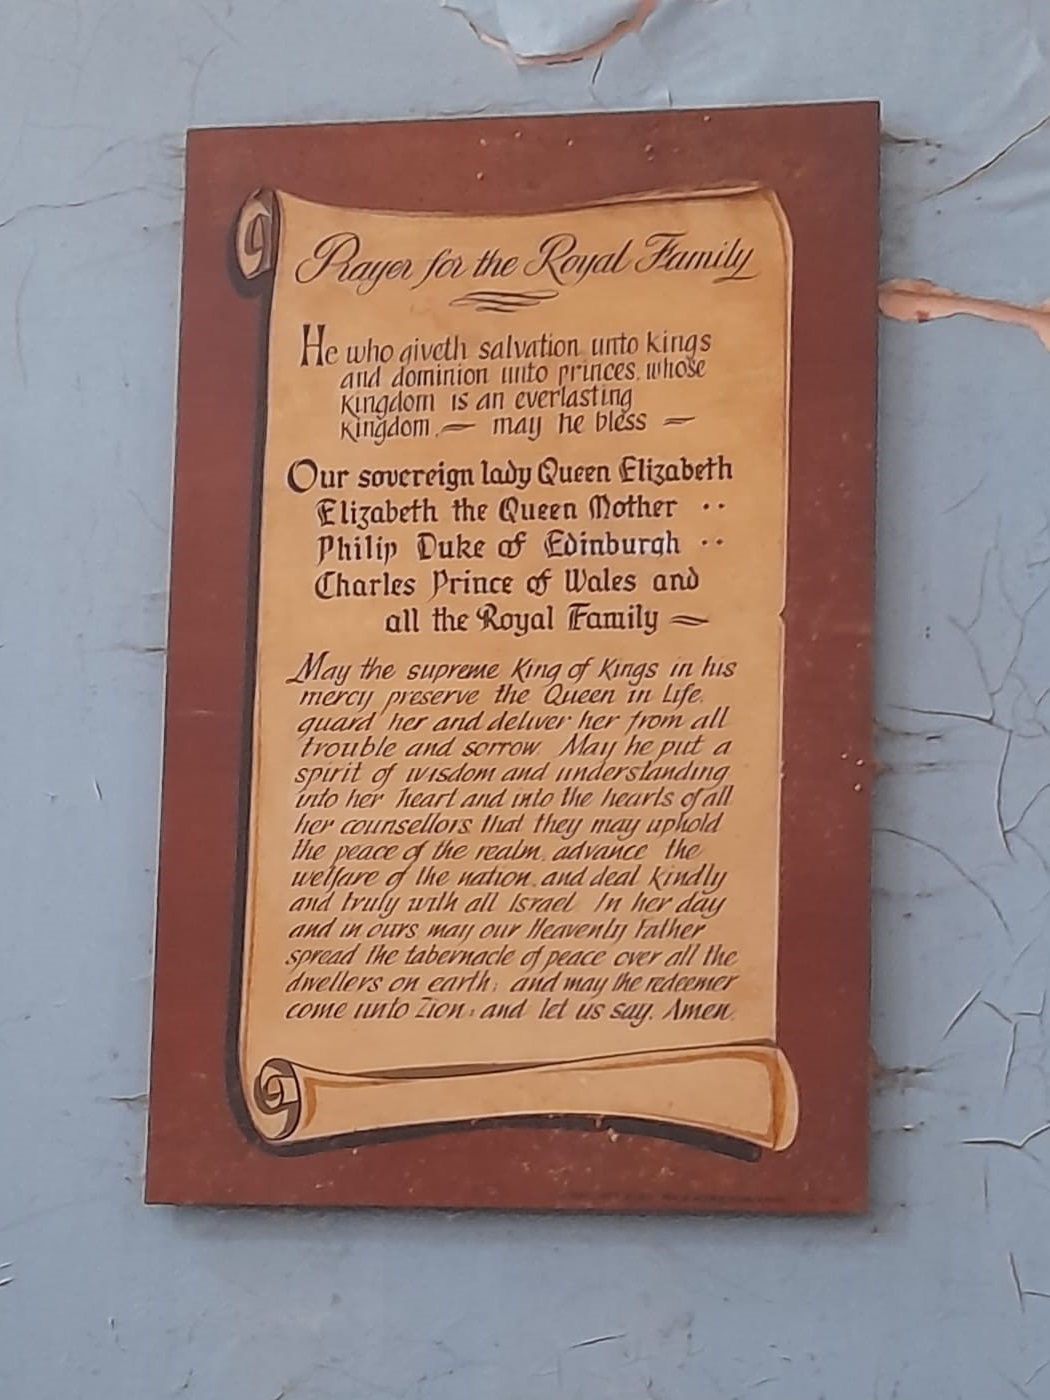 Prayer for the Royal Family
He who giveth salvation unto kings
and dominion unto princes, whose
kingdom is an everlasting
kingdom, — may he bless —
Our sovereign lady Queen Elizabeth
Elizabeth the Queen Mother ..
Philip Duke of Edinburgh ..
Charles Prince of Wales and
all the Royal Family —
May the supreme King of Kings in his
mercy preserve the Queen in Life,
guard her and deliver her from all
trouble and sorrow. May he put a
spirit of wisdom and understanding
into her heart and into the hearts of all
her counsellors that they may uphold
the peace of the realm, advance the
welfare of the nation, and deal kindly
and truly with all Israel. In her day
and in ours may our Heavenly Father
spread the tabernacle of peace over all the
dwellers on earth; and may the redeemer
come unto Zion; and let us say, Amen.